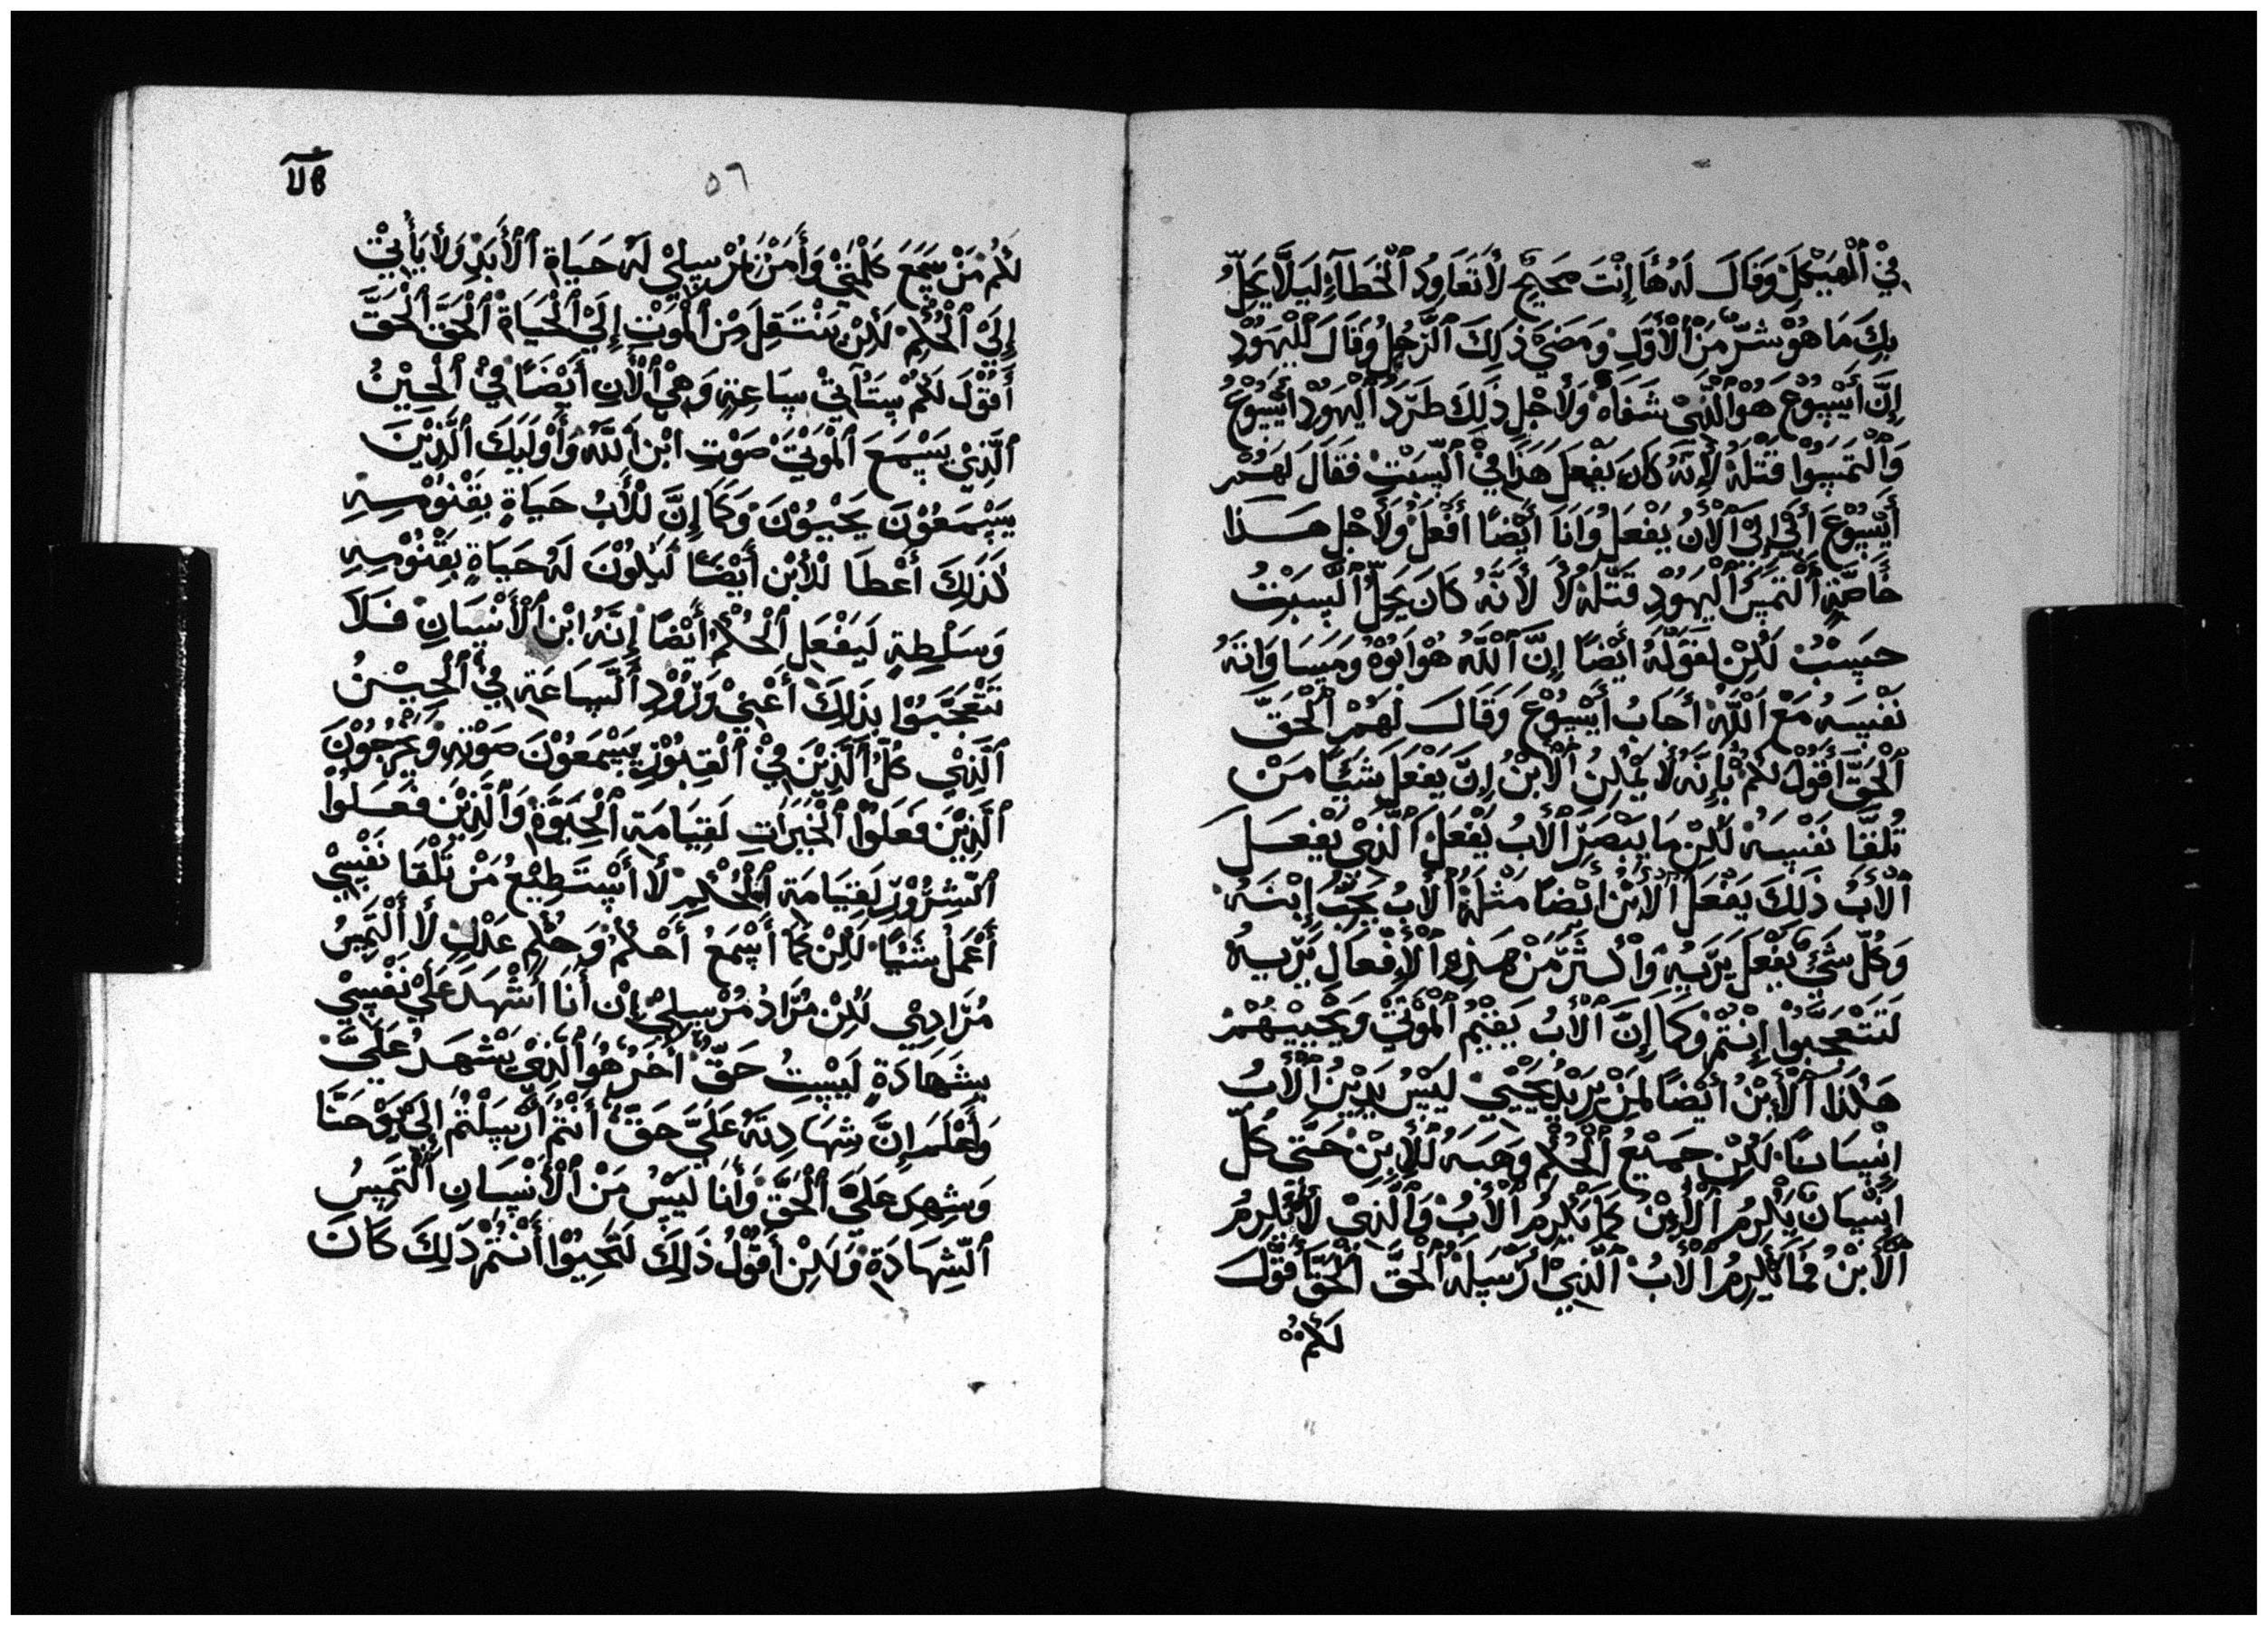 في ٱلهيكل وقال له ها إنت صحيح لا تعاود ٱلخطاء ليلا يحل
بك ما هو شر من ٱلأول ومضى ذلك ٱلرجل وقال لليهود
إن أيسوع هو ٱلذي شفاه ولأجل ذلك طرد ٱليهود أيسوع
وٱلتمسوا قتله لأنه كان يفعل هذا في ٱلسبت فقال لهم
أيسوع أبي إلى ٱلأن يفعل وأنا أيضا أفعل ولأجل هذا
خاصة ٱلتمس ٱليهود قتله لا لأنه كان يحل ٱلسبت
حسب لكن لقوله أيضا إن ٱلله هو أبوه ومسا وانه
نفسه مع ٱلله أجاب أيسوع وقال لهم ٱلحق
ٱلحق أقول لكم بإنه لا يمكن ٱلأبن إن يفعل شئيا من
تلقا نفسه لكن ما يبصر ٱلأب يفعل ٱلذي يفعل
ٱلأب ذلك يفعل ٱلأبن أيضا مثله ٱلأب يحب إبنه
وكل شئ يفعل يريه وأكثر من هذه ٱلأفعال يريه
لتتعجبوا إنتم وكما إن ٱلأب يقيم ٱلموتى ويحييهم
هكذا ٱلأبن أيضا لمن يريد يحيي ليس يدين ٱلأب
إنسانا لكن جميع ٱلحكم وهبه للأبن حتى كل
إنسان يكرم ٱلأبن كما يكرم ٱلأب وٱلذي لا يكرم
ٱلأبن فما يكرم ٱلأب ٱلذي أرسله ٱلحق ٱلحق أقول
لكم
٥٦
لكم من سمع كلمتي وأمن بمرسلي له حياة ٱلأبد ولا يأتي
إلى ٱلحكم لكن ينتقل من ٱلموت إلى ٱلحياة ٱلحق ٱلحق
أقول لكم ستأتي ساعة وهي ٱلأن أيضا في ٱلحين
ٱلذي يسمع ٱلموتى صوت ابن ٱلله وأوليك ٱلذين
يسمعون يحييون وكما إن للأب حياة بقنومسه
كذلك أعطا للأبن أيضا ليكون له حياة بقنومسه
وسلطة ليفعل ٱلحكم أيضا إنه ابن ٱلأنسان فلا
تتعجبوا بذلك أعني وزود ٱلساعة في ٱلحين
ٱلذي كل ٱلذين في ٱلقبور يسمعون صوته ويخرجون
ٱلذين فعلوا ٱلخيرات لقيامة ٱلحيوة وٱلذين فعلوا
ٱلشرور لقيامة ٱلحكم لا أستطيع من تلقا نفسي
أعمل شئيا لكن كما أسمع أحكم وحكم عدل لا ألتمس
مرادي لكن مراد مرسلي إن أنا أشهد على نفسي
شهادة ليست حق أخر هو ٱلذي يشهد علي
وأعلم إن شهادته علي حق أنتم أرسلتم إلى يوحنا
وشهد على ٱلحق وأنا ليس من ٱلأنسان ٱلتمس
ٱلشهادة ولكن أقول ذلك لتحيوا أنتم ذلك كان